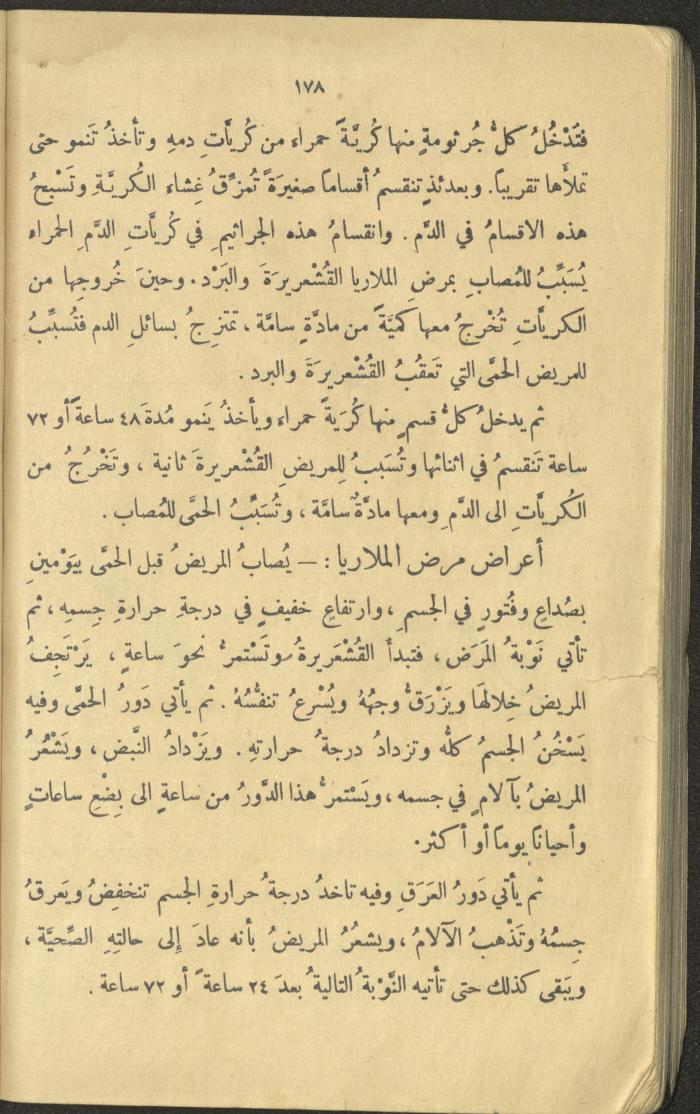 ١٧٨
فتَدْخُلُ كلُّ جُرثومةٍ منها كُريَّةً حمراء من كُريَّاتِ دمهِ وتأخذُ تَنمو حتى
تملأَها تقريباً. وبعدئذٍ تنقسمُ أقساماً صغيرَةً تُمزِّقُ غِشاء الكُريَّةِ وتَسْبحُ
هذه الاقسامُ في الدَّم. وانقسامُ هذه الجراثيمِ في كُريَّاتِ الدَّمِ الحمراء
يُسَبِّبُ للمُصابِ بمرضِ الملاريا القُشْعريرَةَ والبَرْد. وحينَ خُروجِها من
الكريَّاتِ تُخْرجُ معها كمّيَّةً من مادَّةٍ سامَّة، تمتزجُ بسائلِ الدم فتُسبِّبُ
للمريض الحمَّى التي تَعقُبُ القُشْعريرَةَ والبرد.
ثم يدخلُ كلُّ قسمٍ منها كُرَيةً حمراء ويأخذُ يَنمو مُدةَ ٤٨ ساعةً أو ٧٢
ساعة تَنقسمُ في اثنائها وتُسَببُ للمريضِ القُشْعريرةَ ثانية، وتَخْرُجُ من
الكُريَّاتِ الى الدَّمِ ومعها مادَّةٌ سامَّة، وتُسَبِّبُ الحمَّى للمُصاب.
أعراض مرض الملاريا: — يُصابُ المريضُ قبل الحمَّى بيَوْمينِ
بصُداعٍ وفُتُورٍ في الجسمِ، وارتفاعٍ خفيفٍ في درجةِ حرارةِ جِسمِهِ، ثم
تأتي نَوْبةُ المَرَض، فتبدأ القُشْعَريرةُ وتَسْتمرُّ نحوَ ساعةٍ، يَرْتَجِفُ
المريضُ خِلالهَا ويَزْرَقُّ وجهُهُ ويُسْرِعُ تنفُّسُهُ. ثم يأتي دَورُ الحمَّى وفيه
يَسْخُنُ الجسمُ كلُّه وتزدادُ درجةُ حرارتهِ. ويَزْدادُ النَّبض، ويَشْعُرُ
المريضُ بآلامٍ في جسمه، ويَسْتمرُّ هذا الدَّورُ من ساعةٍ الى بِضْعِ ساعاتٍ
وأحيانًا يوماً أو أكثر.
ثم يأتي دَورُ العَرَقِ وفيه تاخدُ درجةُ حرارةِ الجسم تنخفِضُ ويَعرقُ
جِسمُهُ وتَذْهبُ الآلامُ، ويشعُرُ المريضُ بأنه عادَ إلى حالتِهِ الصِّحيَّة،
ويَبقى كذلك حتى تأتيه النَّوْبةُ التاليةُ بعدَ ٢٤ ساعةً أو ٧٢ ساعة.